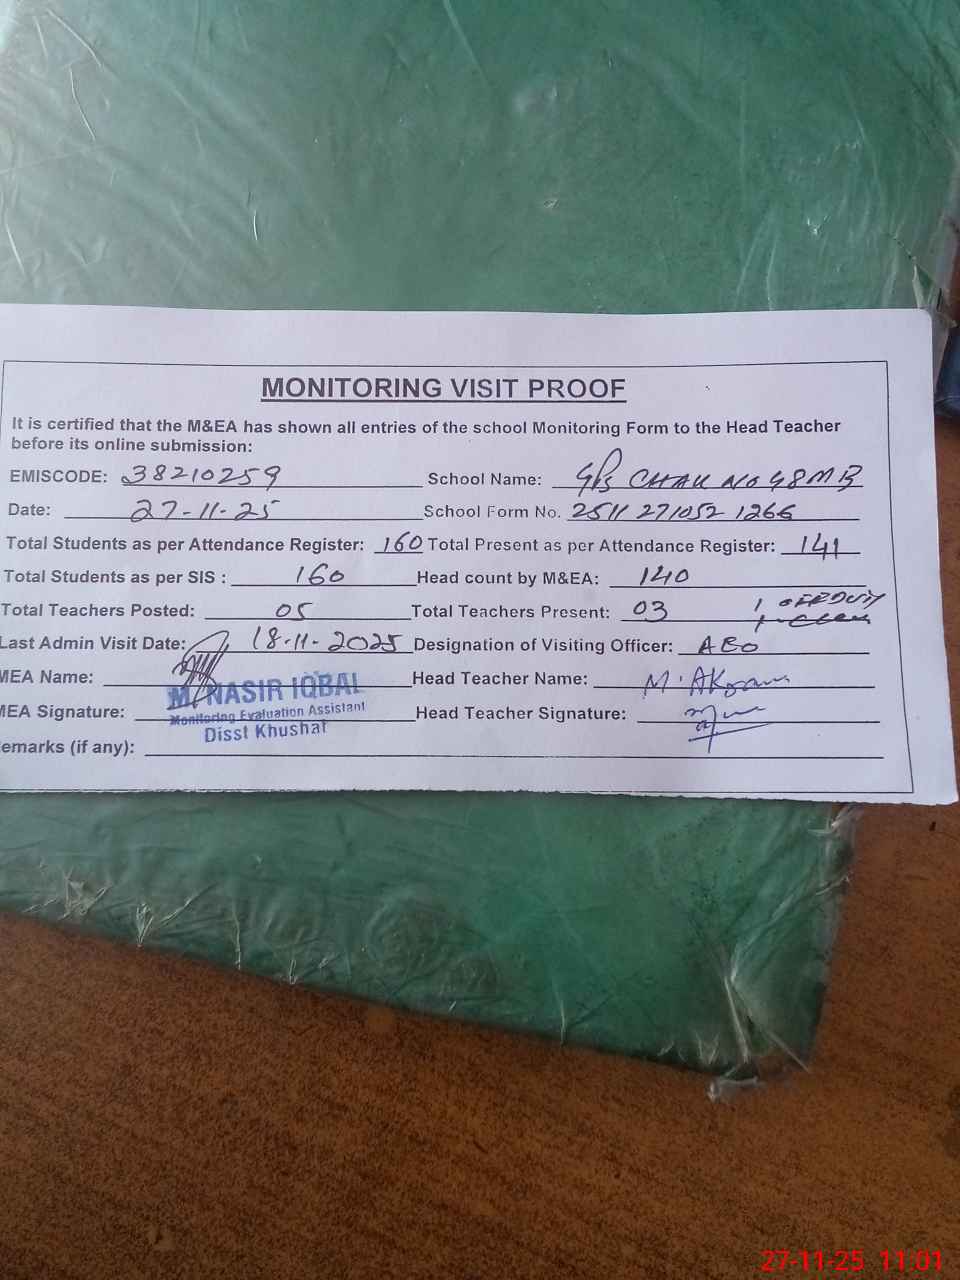 MONITORING VISIT PROOF
It is certified that the M&EA has shown all entries of the school Monitoring Form to the Head Teacher
before its online submission:
EMISCODE: 38210259 School Name: GPS CHAK NO 48 MB
Date: 27-11-25 School Form No. 2511 271052 1266
Total Students as per Attendance Register: 160 Total Present as per Attendance Register: 141
Total Students as per SIS : 160 Head count by M&EA: 140
Total Teachers Posted: 05 Total Teachers Present: 03 1
Last Admin Visit Date: 18-11-2025 Designation of Visiting Officer: AEO
MEA Name: Head Teacher Name: M. Akram
M. NASIR IQBAL
MEA Signature: Head Teacher Signature:
Monitoring Evaluation Assistant
Disst Khushaf
emarks (if any):
27-11-25 11:01